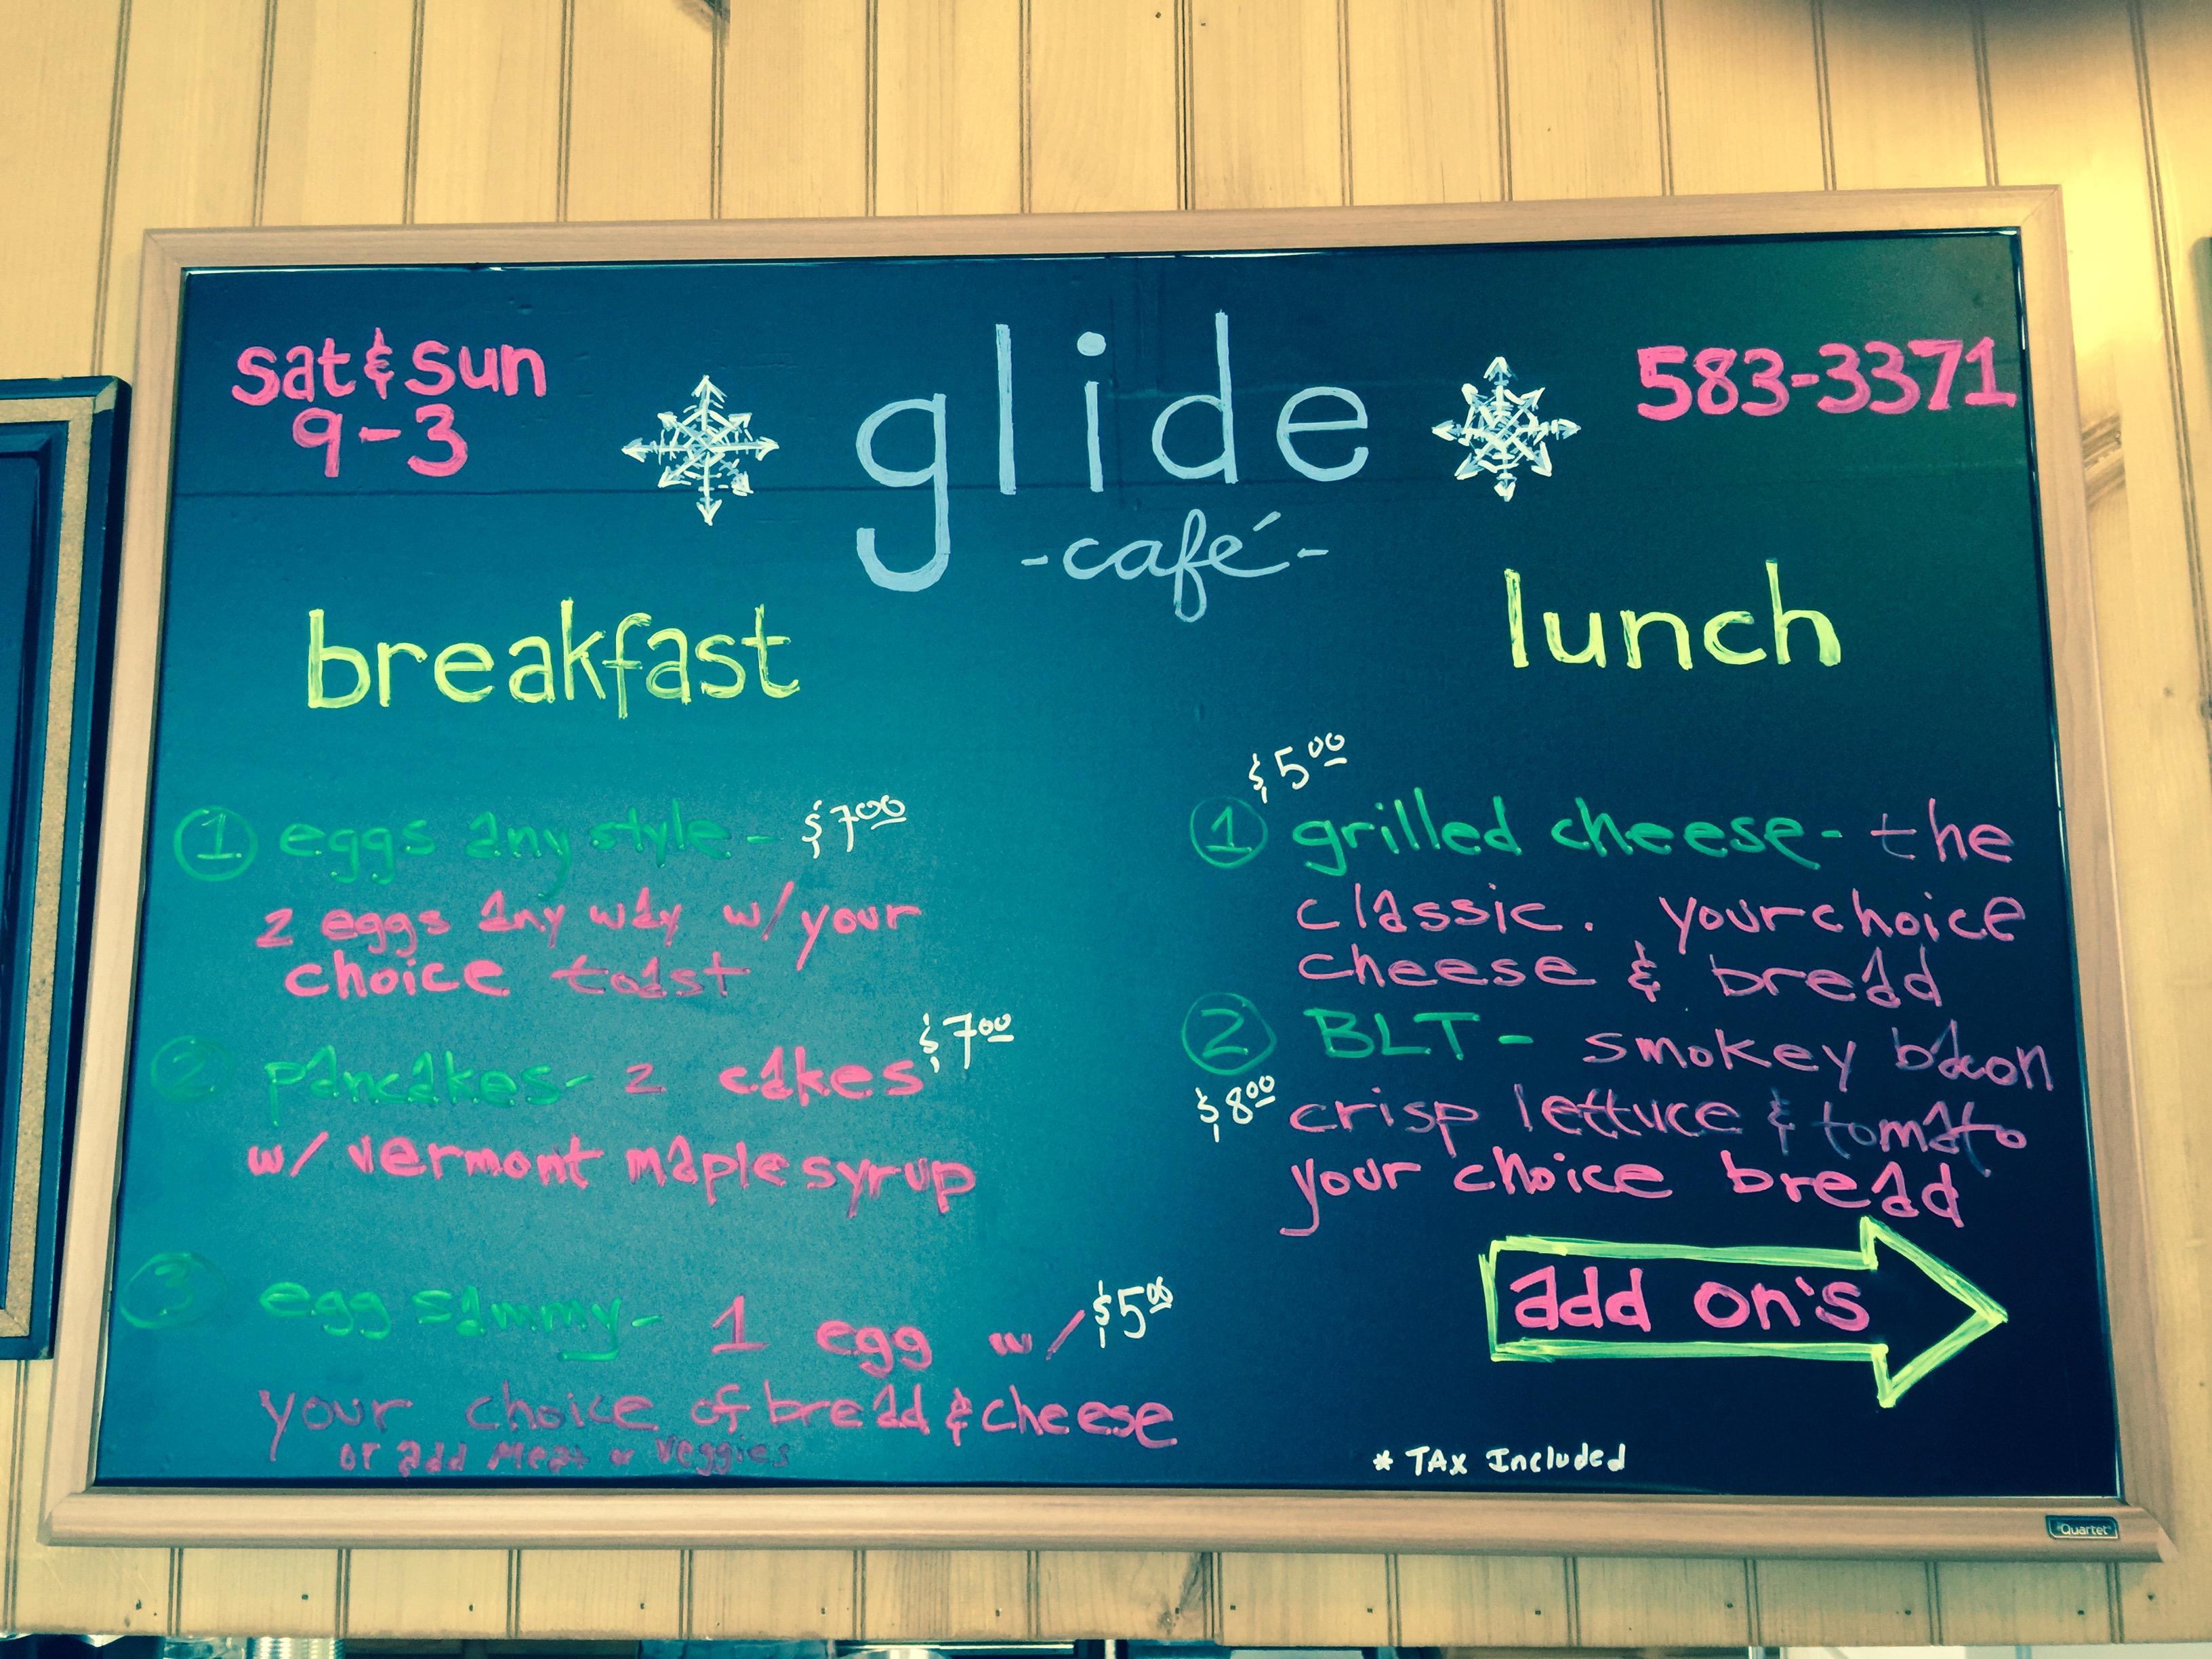 sat & sun
9-3
glide
-café-
583-3371
breakfast
① eggs any style - $7.00
2 eggs any way w/ your
choice toast
② pancakes - 2 cakes $7.00
w/ vermont maple syrup
③ egg sammy - 1 egg w/ $5.00
your choice of bread & cheese
or add meat or veggies
lunch
$5.00
① grilled cheese - the
classic. your choice
cheese & bread
② BLT - smokey bacon
$8.00 crisp lettuce & tomato
your choice bread
add on's
* TAx Included
Quartet